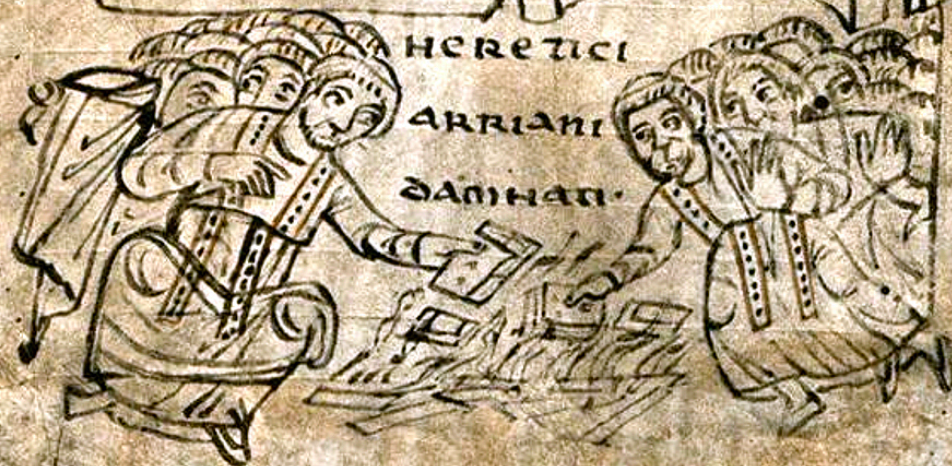 HERETICI
ARRIANI
DAMNATI·